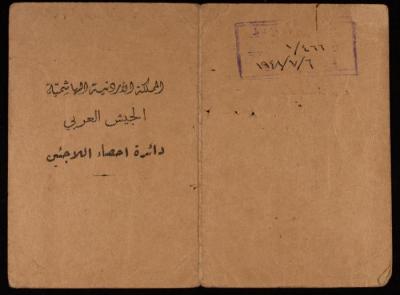 المملكة الأردنية الهاشمية
الجيش العربي
دائرة احصاء اللاجئين
١/٤٦٦
١٩٤٨/٧/٦